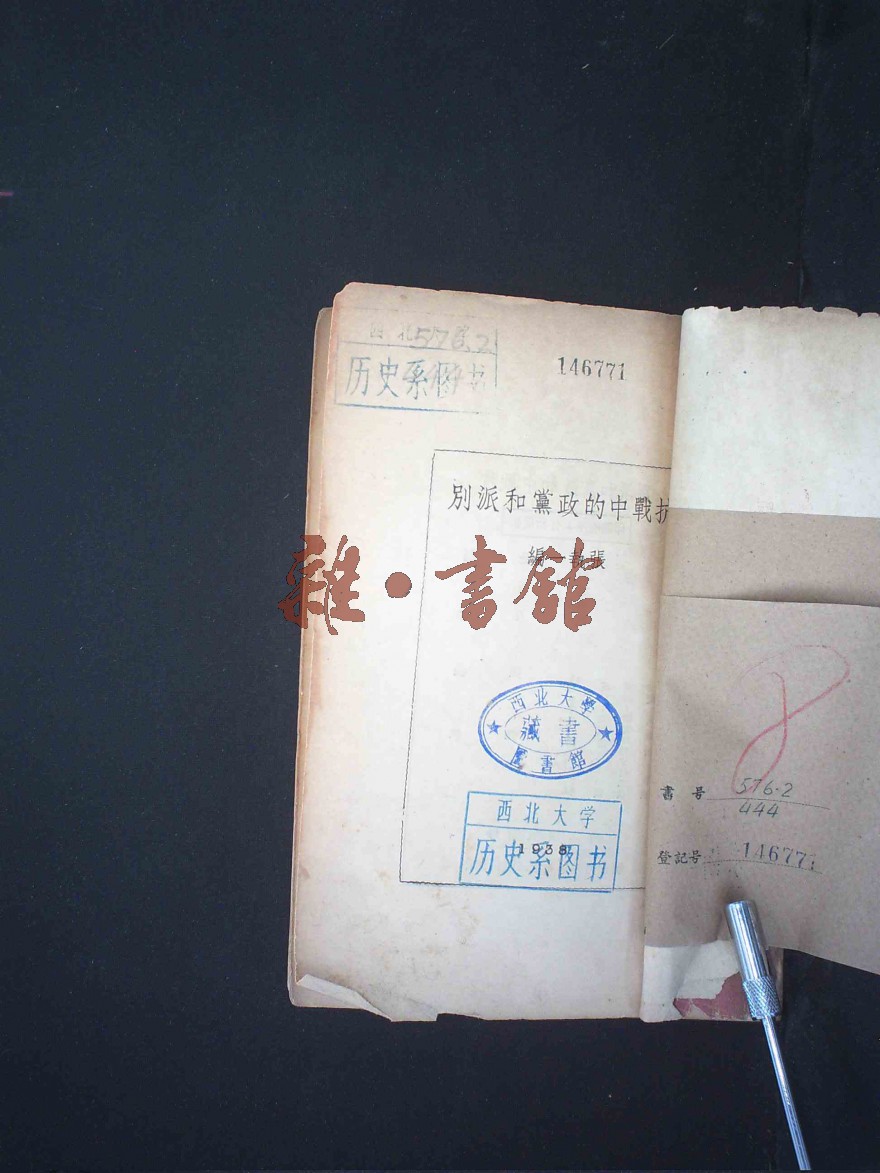 西北
576.2
历史系图书
146771
別派和黨政的中戰抗
編一執張
雜·書館
西北大學
藏書
圖書館
西北大学
历史系图书
1938
8
書号 576.2
444
登記号 146771